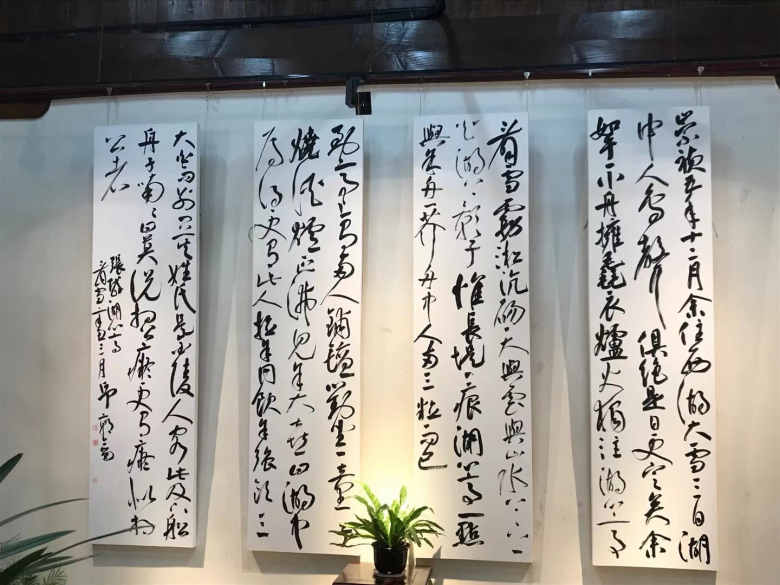 崇禎五年十二月余住西湖大雪三日湖
中人鳥聲俱絕是日更定矣余
拏一小舟擁毳衣爐火獨往湖心亭
看雪霧淞沆碭天與雲與山水上下一
白湖上影子惟長堤一痕湖心亭一點
與余舟一芥舟中人兩三粒而已
到亭上有兩人鋪氈對坐一童子
燒酒爐正沸見余大喜曰湖中
焉得更有此人拉余同飲余強飲三
大白而別問其姓氏是金陵人客此及下船
舟子喃喃曰莫說相公癡更有癡似相
公者
張岱湖心亭
看雪三月